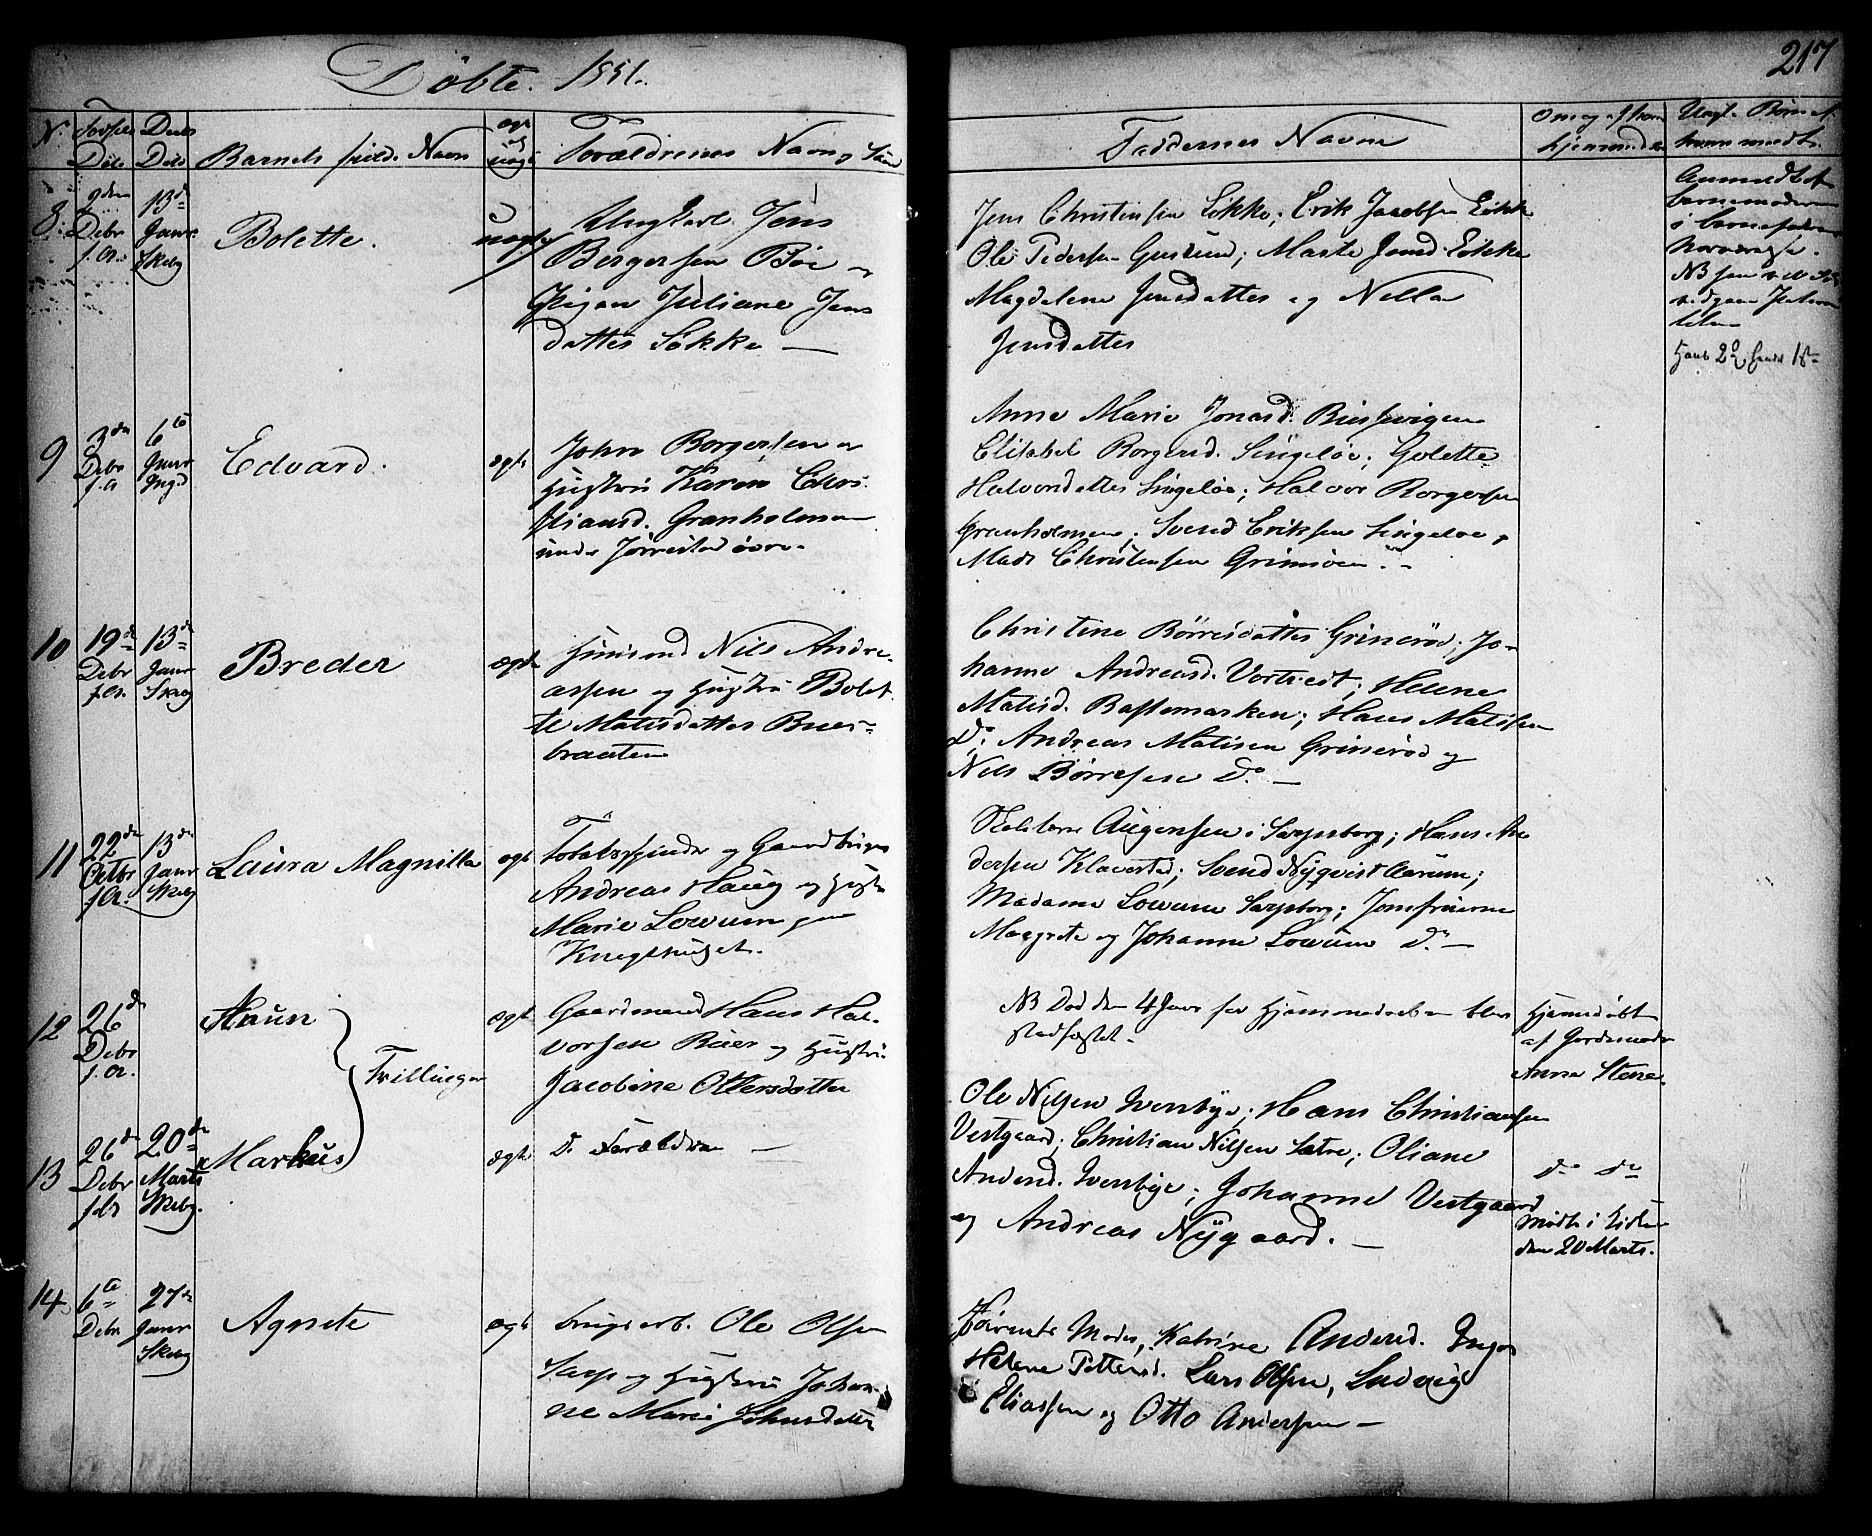 Döbte. 1851.
217
N.
Födsels Dato
Daabs Dato
Barnets fulde Navn
ægte og uægte
Forældrenes Navn,
Faddernes Navne
Uægt. Børn
8.
Debr
13de
Janr.
Skebg
Bolette.
uægte
Ungkarl Jens
Bergersen Böe
Pigen Juliane Jens
datter Lökke —
Jens Christensen Lökke; Erik Jacobsen Lökke
Ole Pedersen Guslund; Marte Jensd. Lökke
Magdelene Jensdatter og Nella
Jensdatter
Anmeldt af
barnemoderen
i barnefaderens
nærværelse.
9
3die
Debr
f. A
6te
Janr
Ingd
Edvard.
ægte
John Borgersen
Hustru Karen Chris
tiansd. Granholmen
under
Anne Marie Jonasd.
Elisabet Borgersd. Singelöe; Golette
Halvorsdatter Singelöe; Halvor Borgersen
Granholmen; Svend Eriksen Singelöe,
Mads Christensen Grimsöen. -
10
19de
Debr
f. A.
13de
Janr
Skbg
Breder
ægte
Huusmand Nils Andre-
assen og Hustru Bolet
te Matisdatter Buer-
braaten
Christine Börresdatter Grinerød; Jo-
hanne Andreasd. Vortvedt; Helene
Matisd. Bastemarken; Hans Matisen
Do; Andreas Matisen Grinerød og
Nils Börresen Do —
11
22de
Octbr
f. A.
13de
Janr
Skebg
Laura Magnilla
ægte
Tobaksspinder og Gaardbruger
Andreas Haug og Hust
Marie Lowum paa
Knegthuset.
Augensen i Sarpsborg; Hans An
dersen Klavestad; Svend Nyqvist Aarum;
Madame Lowum Sarpsborg; Jomfruerne
Margrete og Johanne Lowum Do —
12
26de
Debr
f. A.
Haun
Tvillinger
ægte
Gaardmand Hans Hal-
vorsen Buer og Hustru
Jacobine Ottersdatter
NB Död den 4 Janr før Hjemmedaaben blev
stadfæstet.
Hjemmedöbt
af Jordemoder
Anna Stene.
13
26de
Debr
20de
Marts
Skebg.
Markus
ægte
Do Forældre —
Ole Nilsen Iversbye; Hans Christiansen
Vestgaard; Christian Nilsen Sætre; Oliane
Andersd. Iversbye; Johanne Vestgaard
og Andreas Nygaard. —
do do
mödte i Kirken
den 20 Marts.
14
6te
Debr
27de
Janr
Skebg
Agnete
ægte
Brugsarb. Ole Olsen
Sarp og Hustru Johan-
ne Marie Johnsdatter
Moder, Katrine Andersd. Inger
Helene Pettersd. Lars Olsen, Ludvig
Eliassen og Otto Andersen —